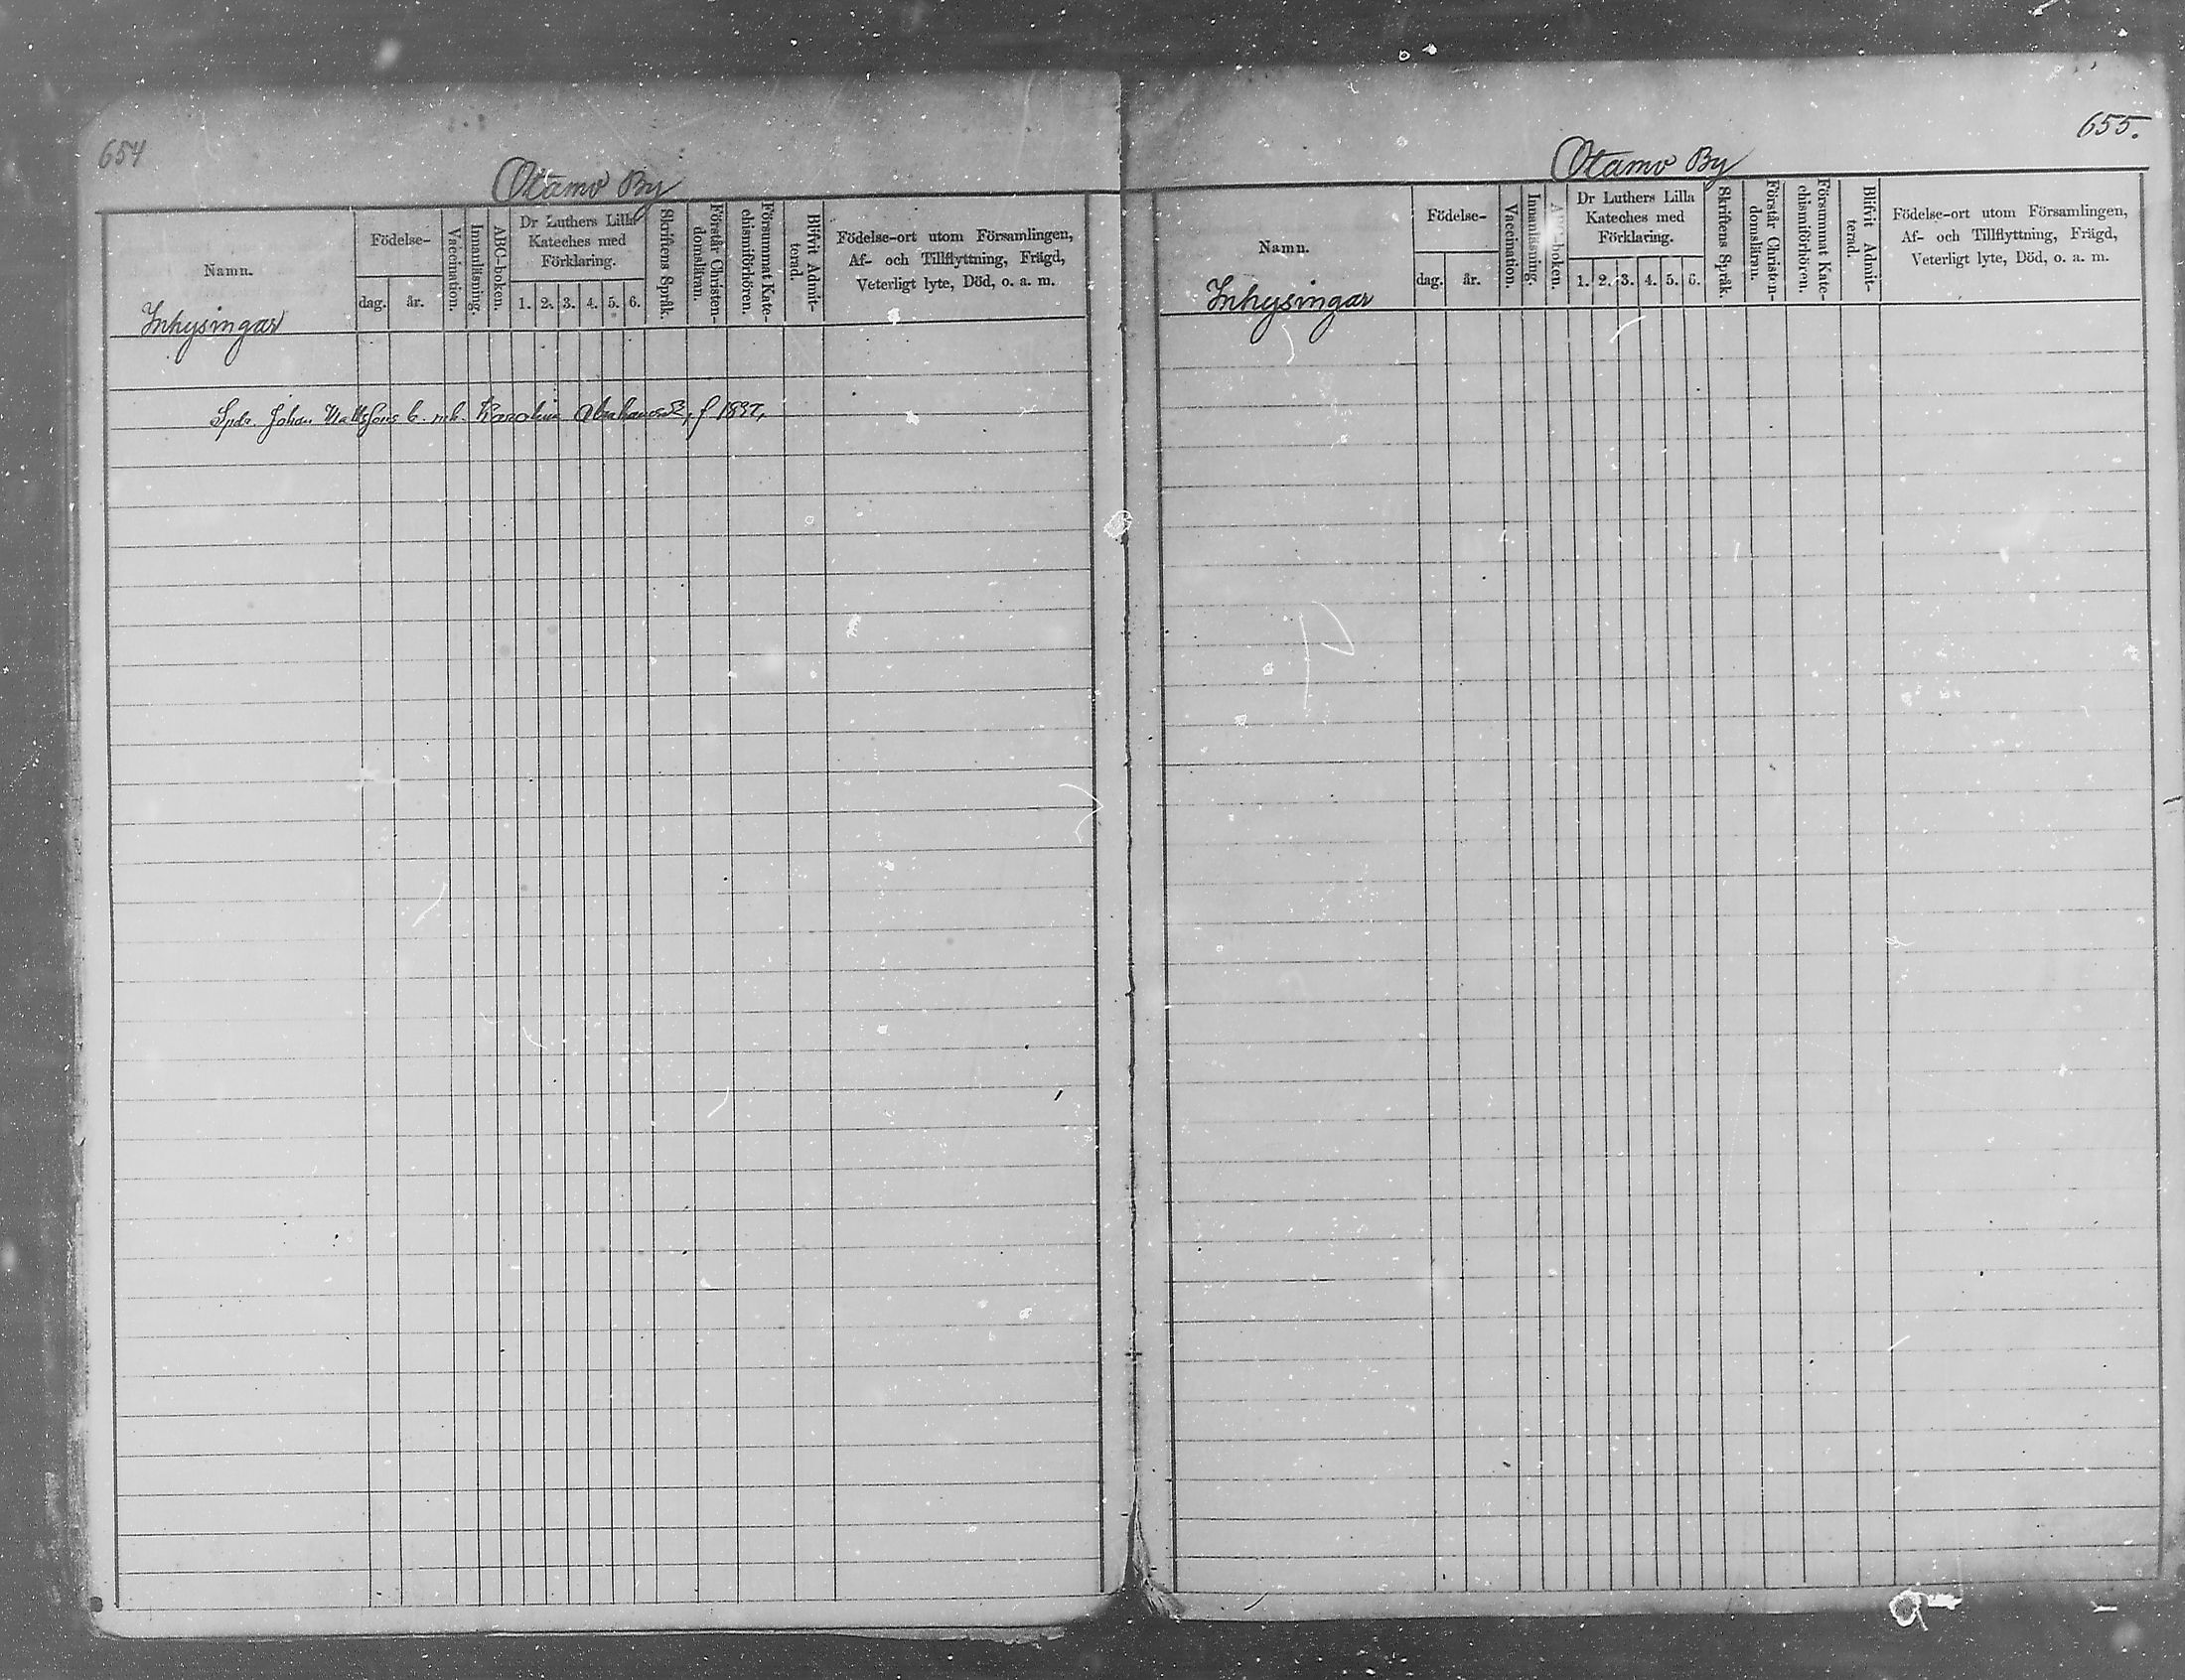 654
Otamo By
Namn.
Inhysingar
Födelse-
dag.
år.
Vaccination.
Innanläsning.
ABC-boken.
Dr Luthers Lilla
Kateches med
Förklaring.
1. 2. 3. 4. 5. 6.
Skriftens Språk.
Förstår Christen-
domsläran.
Försummat Kate-
chismiförhören.
Blifvit Admit-
terad.
Födelse-ort utom Församlingen,
Af- och Tillflyttning, Frägd,
Veterligt lyte, Död, o. a. m.
Johan Mattsons Karolina f
655.
Otamo By
Namn.
Inhysingar
Födelse-
dag.
år.
Vaccination.
Innanläsning.
ABC-boken.
Dr Luthers Lilla
Kateches med
Förklaring.
1. 2. 3. 4. 5. 6.
Skriftens Språk.
Förstår Christen-
domsläran.
Försummat Kate-
chismiförhören.
Blifvit Admit-
terad.
Födelse-ort utom Församlingen,
Af- och Tillflyttning, Frägd,
Veterligt lyte, Död, o. a. m.